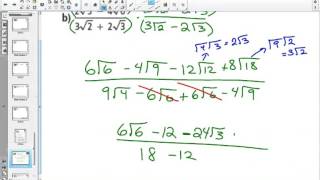 b) (3√2 + 2√3) (3√2 − 2√3)
√4√3 = 2√3
√9√2 = 3√2
6√6 − 4√9 − 12√12 + 8√18
9√4 − 6√6 + 6√6 − 4√9
6√6 − 12 − 24√3 ·
18 − 12